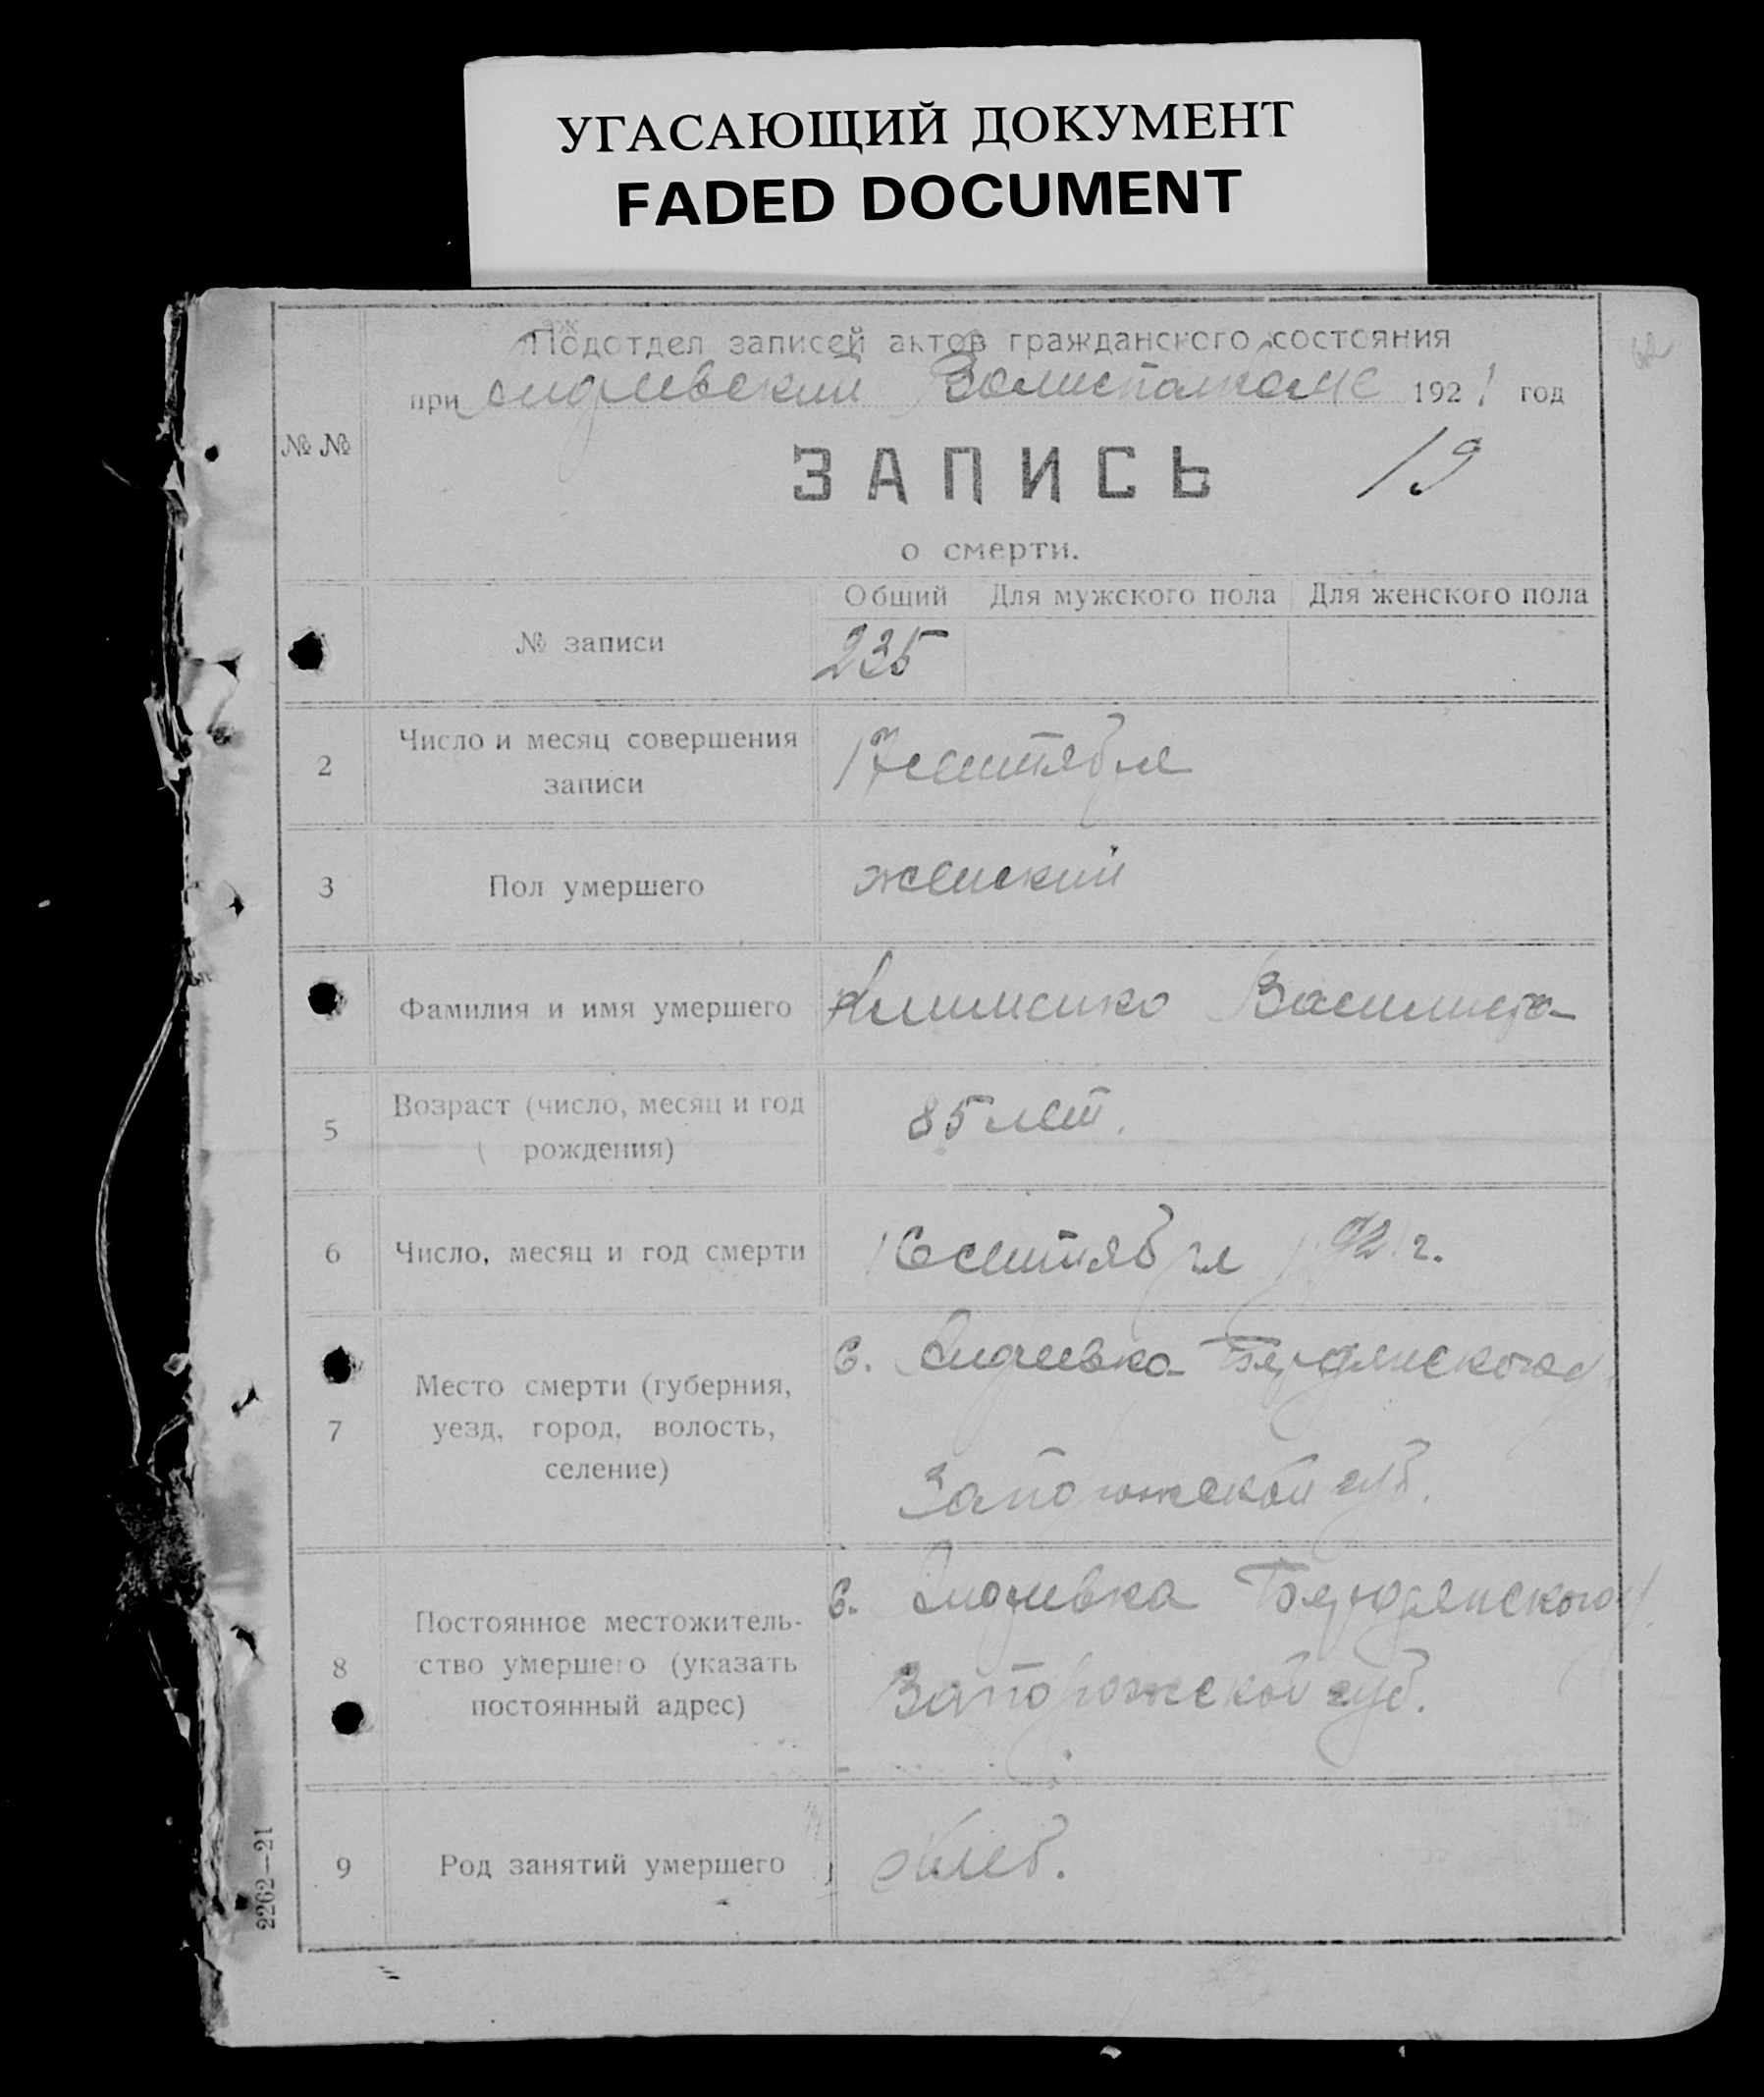 УГАСАЮЩИЙ ДОКУМЕНТ
FADED DOCUMENT
Подотдел записей актов гражданского состояния
при Андреевский Волисполкоме 1921 год
№ №
ЗАПИСЬ 19
о смерти.
Общий Для мужского пола Для женского пола
№ записи 235
2 Число и месяц совершения
записи
17 сентября
3 Пол умершего женский
Фамилия и имя умершего Клименко
5 Возраст (число, месяц и год
( рождения)
85 лет.
6 Число, месяц и год смерти 16 сентября 192 г.
7 Место смерти (губерния,
уезд, город, волость,
селение)
с. Андреевка Бердянского у
Запорожской губ.
8 Постоянное местожитель-
ство умершего (указать
постоянный адрес)
с. Андреевка Бердянского у.
Запорожской губ.
9 Род занятий умершего хлеб.
2262—21